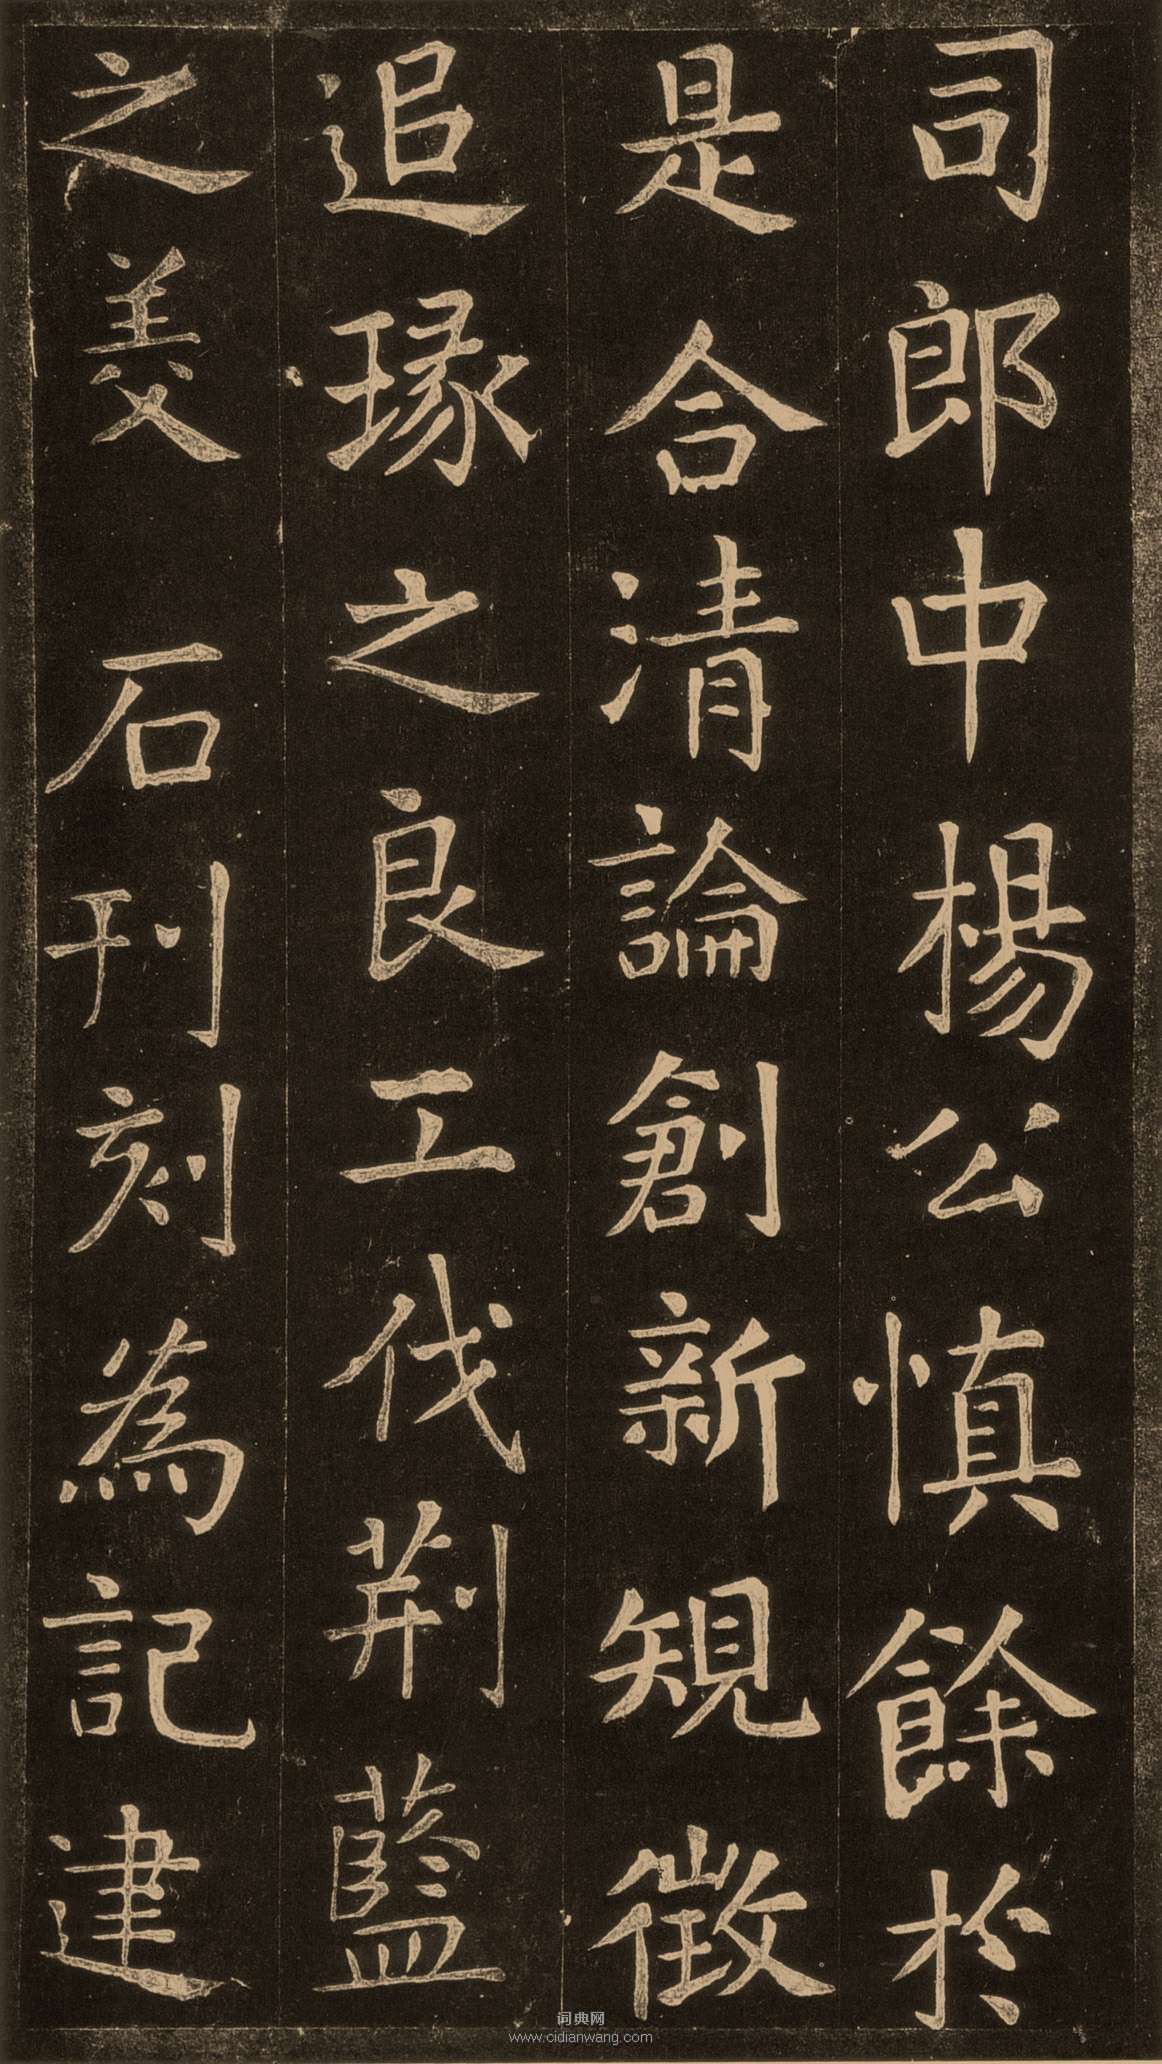 司郎中楊公慎餘於
是合清論創新規徵
追琢之良工伐荆藍
之美石刊刻為記建
词典网
www.cidianwang.com